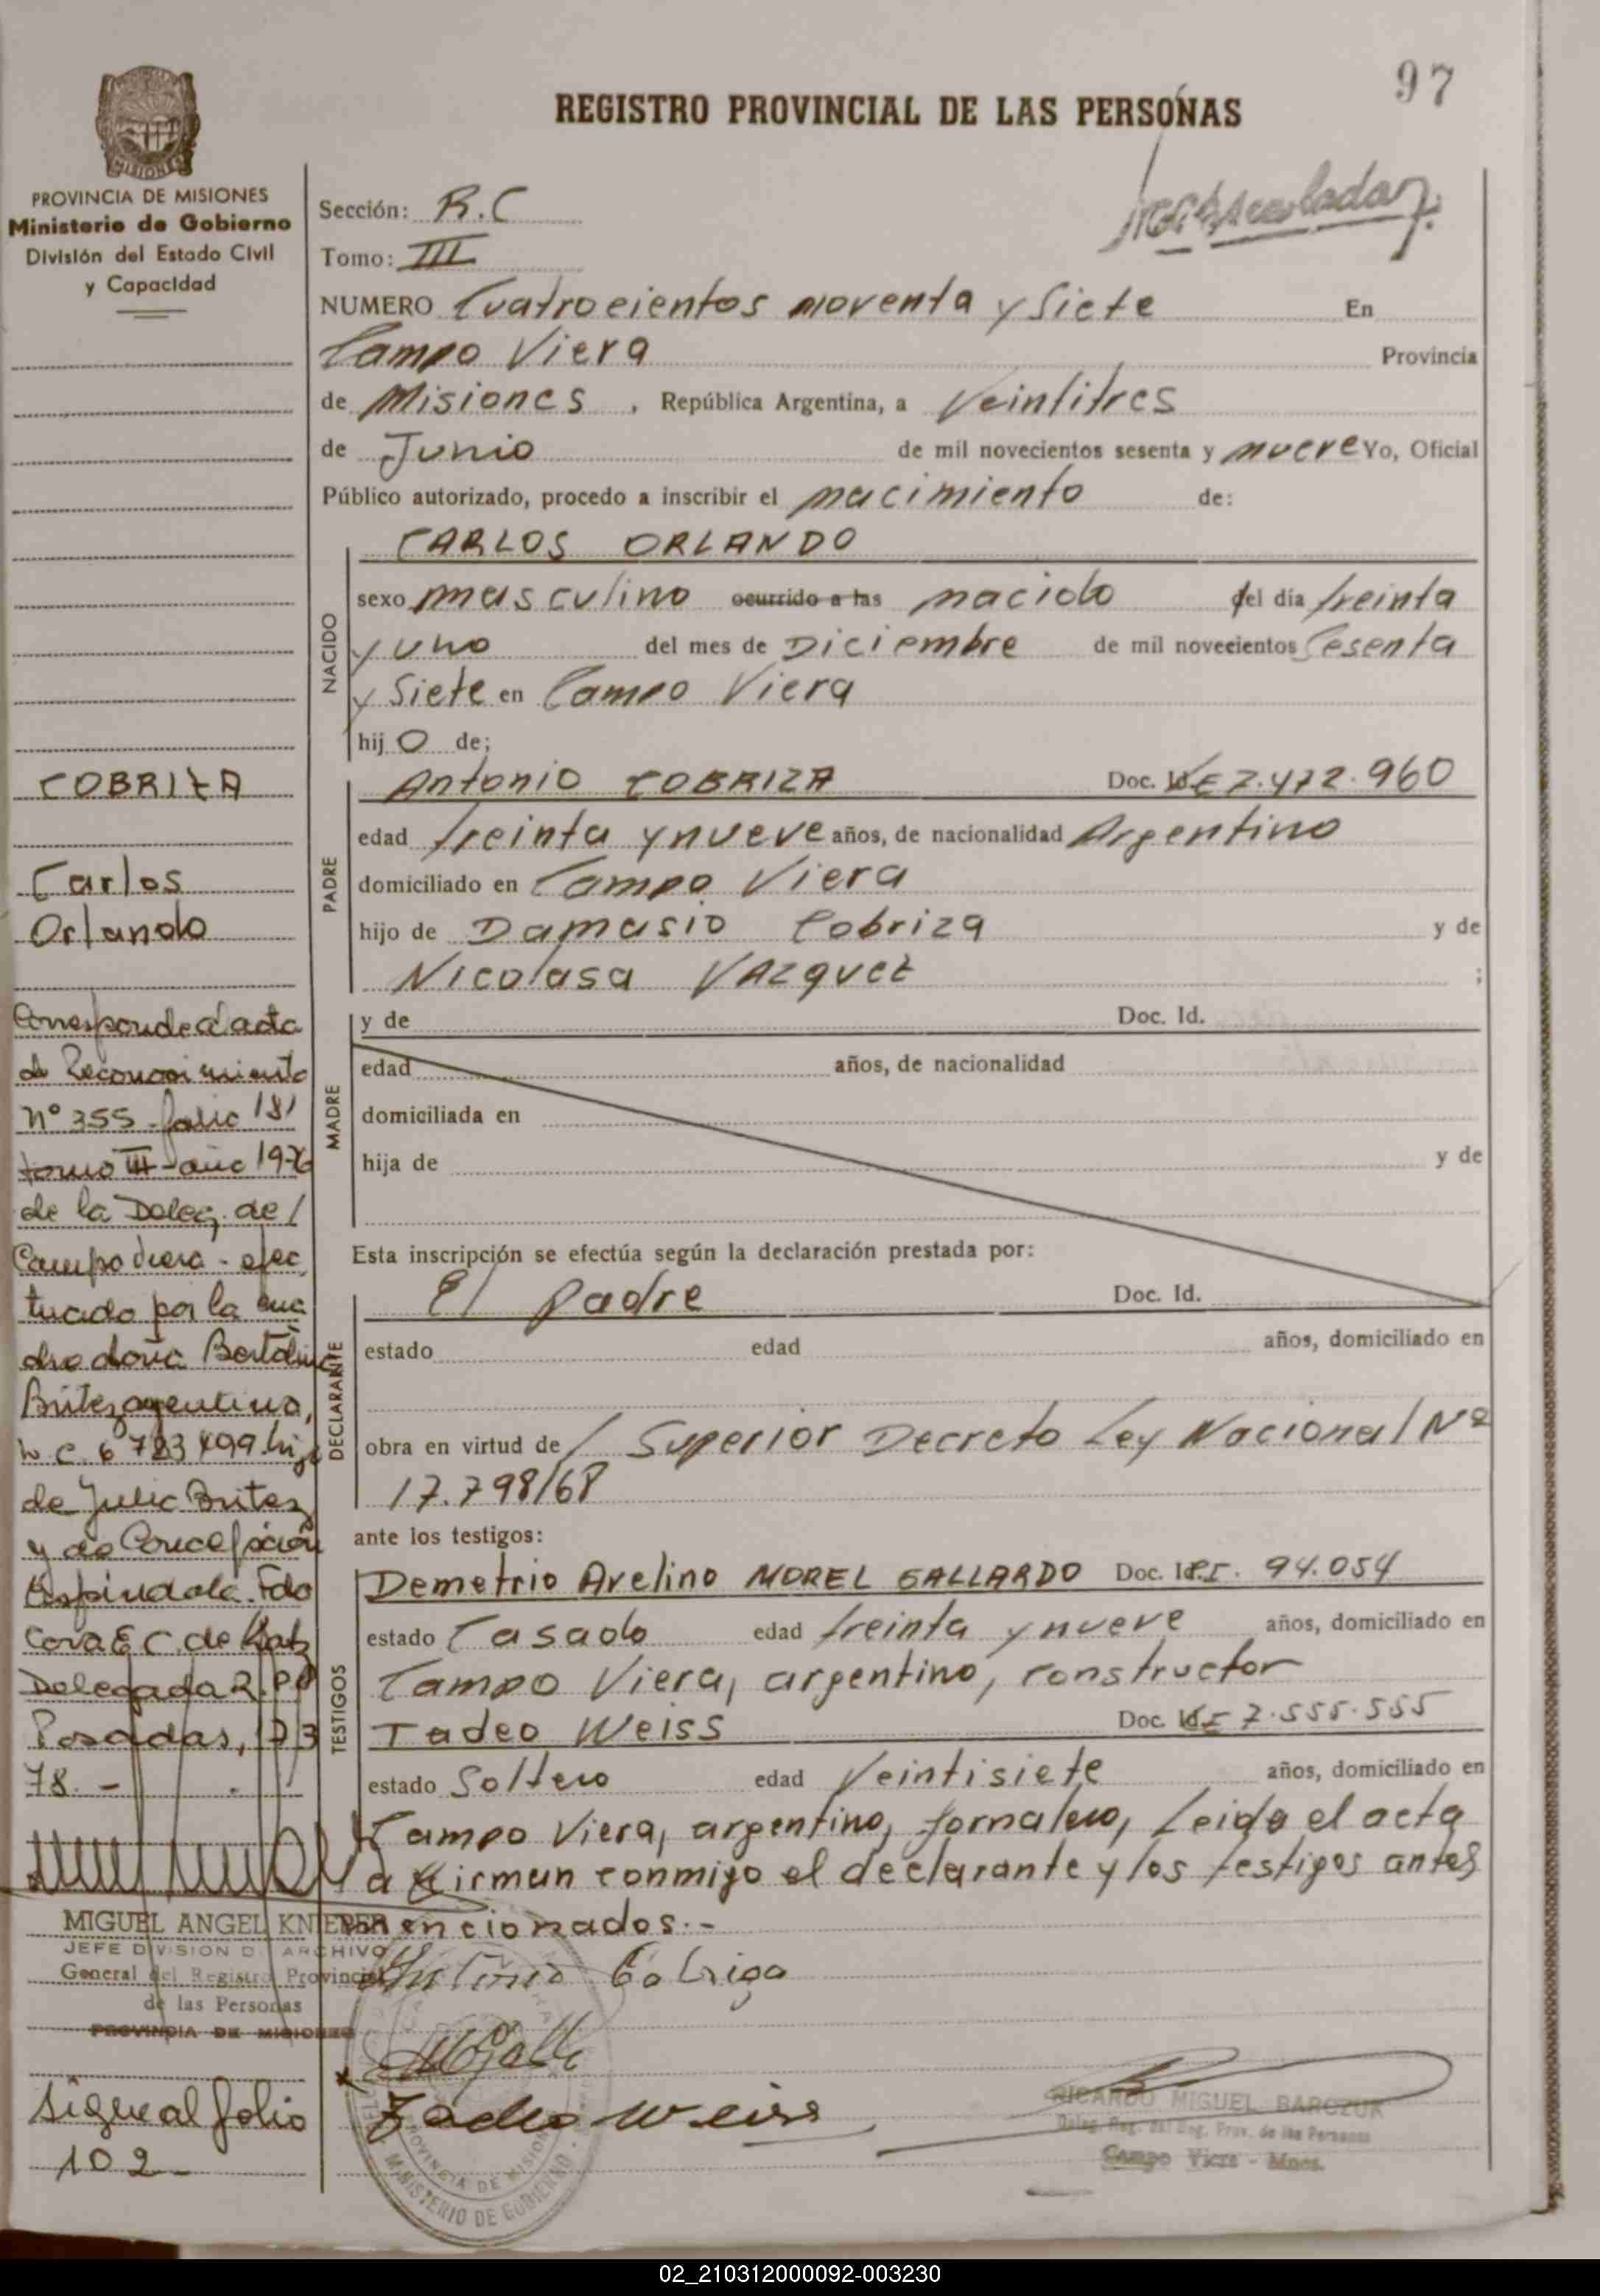 97
REGISTRO PROVINCIAL DE LAS PERSONAS
MISIONES
PROVINCIA DE MISIONES
Ministerio de Gobierno
División del Estado Civil
y Capacidad
Sección: R.C
Tomo: III
NUMERO Cuatrocientos noventa y Siete En
Campo Viera Provincia
de Misiones, República Argentina, a Veintitres
de Junio de mil novecientos sesenta y nueve Yo, Oficial
Público autorizado, procedo a inscribir el nacimiento de:
NACIDO
CARLOS ORLANDO
sexo masculino ocurrido a las nacido el día treinta
y uno del mes de Diciembre de mil novecientos Sesenta
y Siete en Campo Viera
hijo de;
PADRE
Antonio COBRIZA Doc. Id. LE 7.472.960
edad treinta y nueve años, de nacionalidad Argentino
domiciliado en Campo Viera
hijo de Damasio Cobriza y de
Nicolasa VAZquez ;
MADRE
y de Doc. Id.
edad años, de nacionalidad
domiciliada en
hija de y de
Esta inscripción se efectúa según la declaración prestada por:
DECLARANTE
El padre Doc. Id.
estado edad años, domiciliado en
obra en virtud de / Superior Decreto Ley Nacional Nº
17.798/68
ante los testigos:
TESTIGOS
Demetrio Avelino MOREL GALLARDO Doc. Id. 94.054
estado Casado edad treinta y nueve años, domiciliado en
Campo Viera, argentino, constructor
Tadeo Weiss Doc. Id. LE 7.555.555
estado Soltero edad Veintisiete años, domiciliado en
Campo Viera, argentino, Jornalero, Leida el acta
la firman conmigo el declarante y los testigos antes
mencionados.-
Antonio Cobriza
Tadeo Weiss
RICARDO MIGUEL BARCZUK
Deleg. Reg. del Reg. Prov. de las Personas
Campo Viera - Mnes.
PROVINCIA DE MISIONES
MINISTERIO DE GOBIERNO
COBRIZA
Carlos
Orlando
Corresponde a acta
de Reconocimiento
Nº 355 - folio 181
tomo III - año 1976
de la Deleg. de /
Campo Viera - efec
tuado por la ma
dre doña Bertolina
Britez argentina,
L C. 6 723 499 hija
de Julio Britez
y de Concepción
Espindola. Fdo
E C. de Katz
Delegada R.PP
Posadas, 17 3
78. -
MIGUEL ANGEL KNIEPER
JEFE DIVISION D. ARCHIVO
General del Registro Provincial
de las Personas
PROVINCIA DE MISIONES
Sigue al folio
102 -
02_210312000092-003230